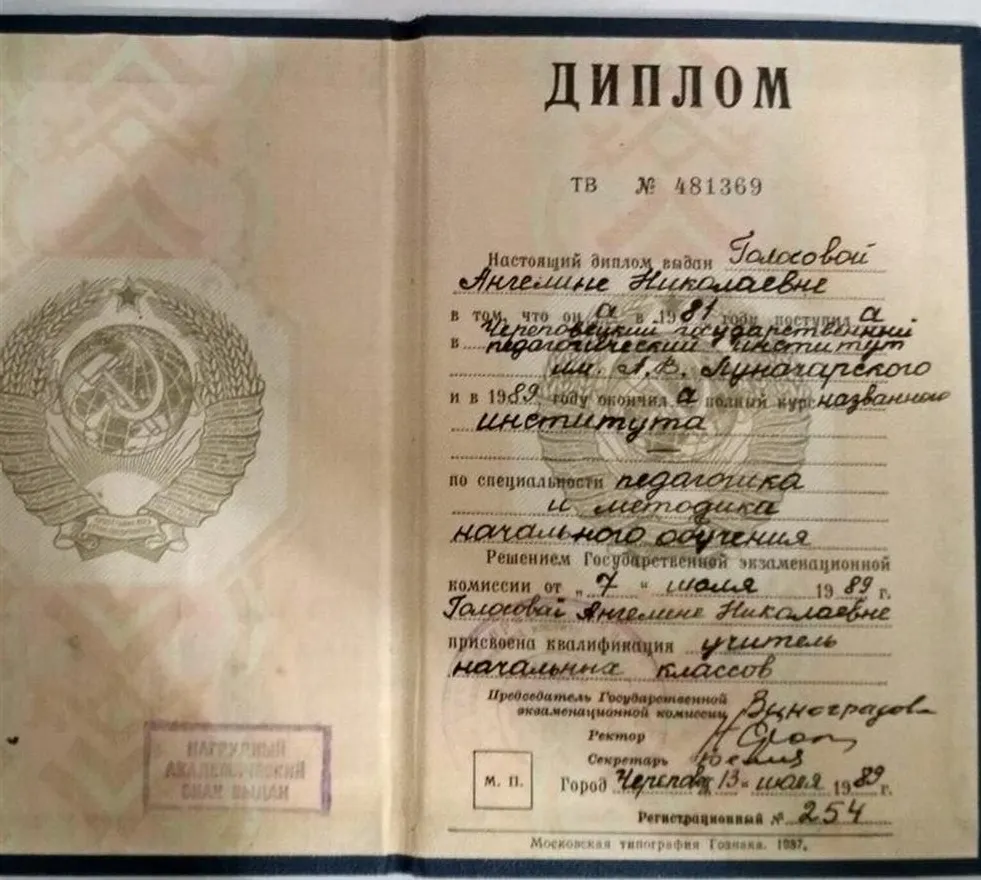 НАГРУДНЫЙ
АКАДЕМИЧЕСКИЙ
ЗНАК ВЫДАН
ДИПЛОМ
ТВ № 481369
Настоящий диплом выдан Голосовой
Ангелине Николаевне
в том, что он а в 1981 году поступил а
Череповецкий государственный
в педагогический институт
им. А.В. Луначарского
и в 1989 году окончил а полный курс названного
института
по специальности педагогика
и методика
начального обучения
Решением Государственной экзаменационной
комиссии от „7" июля 1989 г.
Голосовой Ангелине Николаевне
присвоена квалификация учитель
начальных классов
Председатель Государственной
экзаменационной комиссии Виноградова
Ректор
Секретарь
М. П.
Город Череповец 13 " июля 1989 г.
Регистрационный № 254
Московская типография Гознака. 1987.